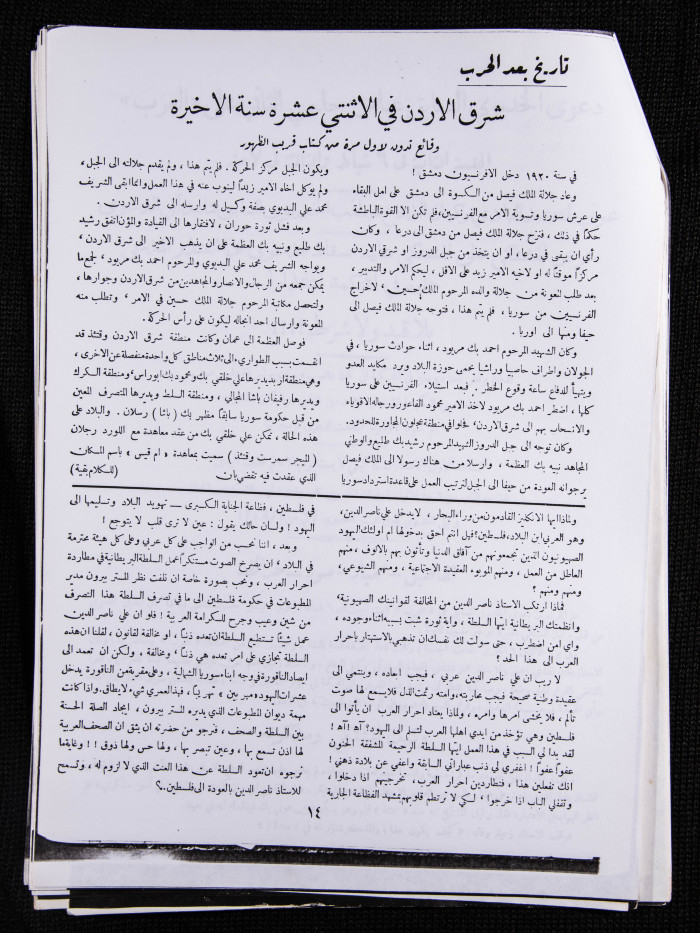 تاريخ بعد الحرب
شرق الاردن في الاثنتي عشرة سنة الاخيرة
وقائع تدون لاول مرة من كتاب قريب الظهور
في سنة ١٩٢٠ دخل الافرنسيون دمشق !
وعاد جلالة الملك فيصل من الكسوة الى دمشق على امل البقاء
على عرش سوريا وتسوية الامر مع الفرنسيين، فلم تكن الا القوة الباطشة
حكماً في ذلك ، فنزح جلالة الملك فيصل من دمشق الى درعا ، وكان
رأي ان يبقى في درعا ، او ان يتخذ من جبل الدروز او شرقي الاردن
مركزاً موقتاً له او لاخيه الامير زيد على الاقل ، ليحكم الامر والتدبير ،
بعد طلب المعونة من جلالة والده المرحوم الملك حسين ، لاخراج
الفرنسيين من سوريا ، فلم يتم هذا ، فتوجه جلالة الملك فيصل الى
حيفا ومنها الى اوربا .
وكان الشهيد المرحوم احمد بك مريود ، اثناء حوادث سوريا ، في
الجولان واطراف حاصبيا وراشيا يحمي حوزة البلاد ويرد مكايد العدو
ويتهيأ للدفاع ساعة وقوع الخطر . فبعد استيلاء الفرنسيين على سوريا
كلها ، اضطر احمد بك مريود لاخذ الامير محمود الفاعور ورجاله الاقوياء
والانسحاب بهم الى شرق الاردن ، فخلوا في منطقة عجلون المجاورة للحدود.
وكان توجه الى جبل الدروز الشهيد المرحوم رشيد بك طليع والوطني
المجاهد نبيه بك العظمة ، وارسلا من هناك رسولا الى الملك فيصل
برجوانه العودة من حيفا الى الجبل لترتيب العمل على قاعدة استرداد سوريا
ويكون الجبل مركز الحركة . فلم يتم هذا ، ولم يقدم جلالته الى الجبل ،
ولم يوكل اخاه الامير زيداً لينوب عنه في هذا العمل وانما ابقى الشريف
محمد علي البديوي بصفة وكيل له وارسله الى شرق الاردن .
وبعد فشل ثورة حوران ، لافتقارها الى القيادة والمؤن اتفق رشيد
بك طليع ونبيه بك العظمة على ان يذهب الاخير الى شرق الاردن ،
ويواجه الشريف محمد علي البديوي والمرحوم احمد بك مريود ، لجمع ما
يمكن جمعه من الرجال والانصار والمجاهدين من شرق الاردن وجوارها ،
ولتحصل مكاتبة المرحوم جلالة الملك حسين في الامر ، وتطلب منه
المعونة وارسال احد انجاله ليكون على رأس الحركة .
فوصل العظمة الى عمان وكانت منطقة شرق الاردن وقتئذ قد
انقسمت بسبب الطواري، الى ثلاث مناطق كل واحدة منفصلة عن الاخرى ،
وهي منطقة اربد يديرها علي خلقي بك ومحمود بك ابو راس ، ومنطقة الكرك
ويديرها رفيفان باشا المجالي ، ومنطقة السلط ويديرها المتصرف المعين
من قبل حكومة سوريا سابقاً مظهر بك ( باشا ) رسلان . والبلاد على
هذه الحالة ، تمكن علي خلقي بك من عقد معاهدة مع اللورد رجلان
( الميجر سمرست وقتئذ ) سميت بمعاهدة « ام قيس » باسم المكان
الذي عقدت فيه تقضي بان (للكلام بقية)
ولماذا ايها الانكليز القادمون من وراء البحار ، لا يدخل علي ناصر الدين،
وهو العربي ابن البلاد، فلسطين! فهل انتم احق بدخولها ام اولئك اليهود
الصهيونيون الذين تجمعونهم من آفاق الدنيا وتأتون بهم بالالوف ، منهم
العاطل من العمل ، ومنهم الموبوء العقيدة الاجتماعية ، ومنهم الشيوعي ،
ومنهم ومنهم ؟
فماذا ارتكب الاستاذ ناصر الدين من المخالفة لقوانينك الصهيونية ،
وانظمتك البريطانية ايتها السلطة ، واية ثورة شبت بسببه اثناء وجوده ،
واي امن اضطرب ، حتى سولت لك نفسك ان تذهبي بالاستهتار باحرار
العرب الى هذا الحد ؟
لا ريب ان علي ناصر الدين عربي ، فيجب ابعاده ، وينتمي الى
عقيدة وطنية صحيحة فيجب محاربته، وامته رئمت الذل فلا يسمع لها صوت
تألم ، فلا يخشى امرها وامره ، ولماذا يعتاد احرار العرب ان يأتوا الى
فلسطين وهي تؤخذ من ايدي اهلها العرب لتسلم الى اليهود؟ آه! آه!
لقد بدا لي السبب في هذا العمل ايتها السلطة الرحيمة المشفقة الحنون
عفواً عفواً ! اغفري لي ذنب عباراتي السابقة واعفي عن بلادة ذهني !
انك تفعلين هذا ، فتطاردين احرار العرب ، تخرجيهم اذا دخلوا ،
وتقفلي الباب اذا خرجوا ، لكي لا ترتطم قلوبهم بمشهد الفظاعة الجارية
في فلسطين ، فظاعة الجناية الكبرى — تهويد البلاد وتسليمها الى
اليهود ! ولسان حالك يقول : عين لا ترى قلب لا يتوجع !
وبعد ، اننا نحسب من الواجب على كل عربي وعلى كل هيئة محترمة
في البلاد ، ان يصرخ الصوت مستنكراً عمل السلطة البريطانية في مطاردة
احرار العرب ، ونحب بصورة خاصة ان نلفت نظر المستر بيرون مدير
المطبوعات في حكومة فلسطين الى ما في تصرف السلطة هذا التصرف
من شين وعيب وجرح للكرامة العربية ! فلو ان علي ناصر الدين
عمل شيئاً تستطيع السلطة ان تعده ذنباً ، او مخالفة لقانون ، لقلنا ان هذه
السلطة تجازي على امر تعده هي ذنباً ، ومخالفة ، ولكن ان تعمد الى
ايصاد الناقورة في وجه ابناء سوريا الشمالية ، وعلى مقربة من الناقورة يدخل
عشرات اليهود « مهربين » تهريباً ، فهذا لعمري شيء لا يطاق. واذا كانت
مهمة ديوان المطبوعات الذي يديره المستر بيرون ، ايجاد الصلة الحسنة
بين السلطة والصحف ، فنرجو من حضرته ان يثق ان الصحف العربية
لها اذن تسمع بها ، وعين تبصر بها ، ولها حس ولها ذوق ! ! وغاية ما
نرجوه ان تعود السلطة عن هذا العنت الذي لا لزوم له ، وتسمح
للاستاذ ناصر الدين بالعودة الى فلسطين..؟
١٤